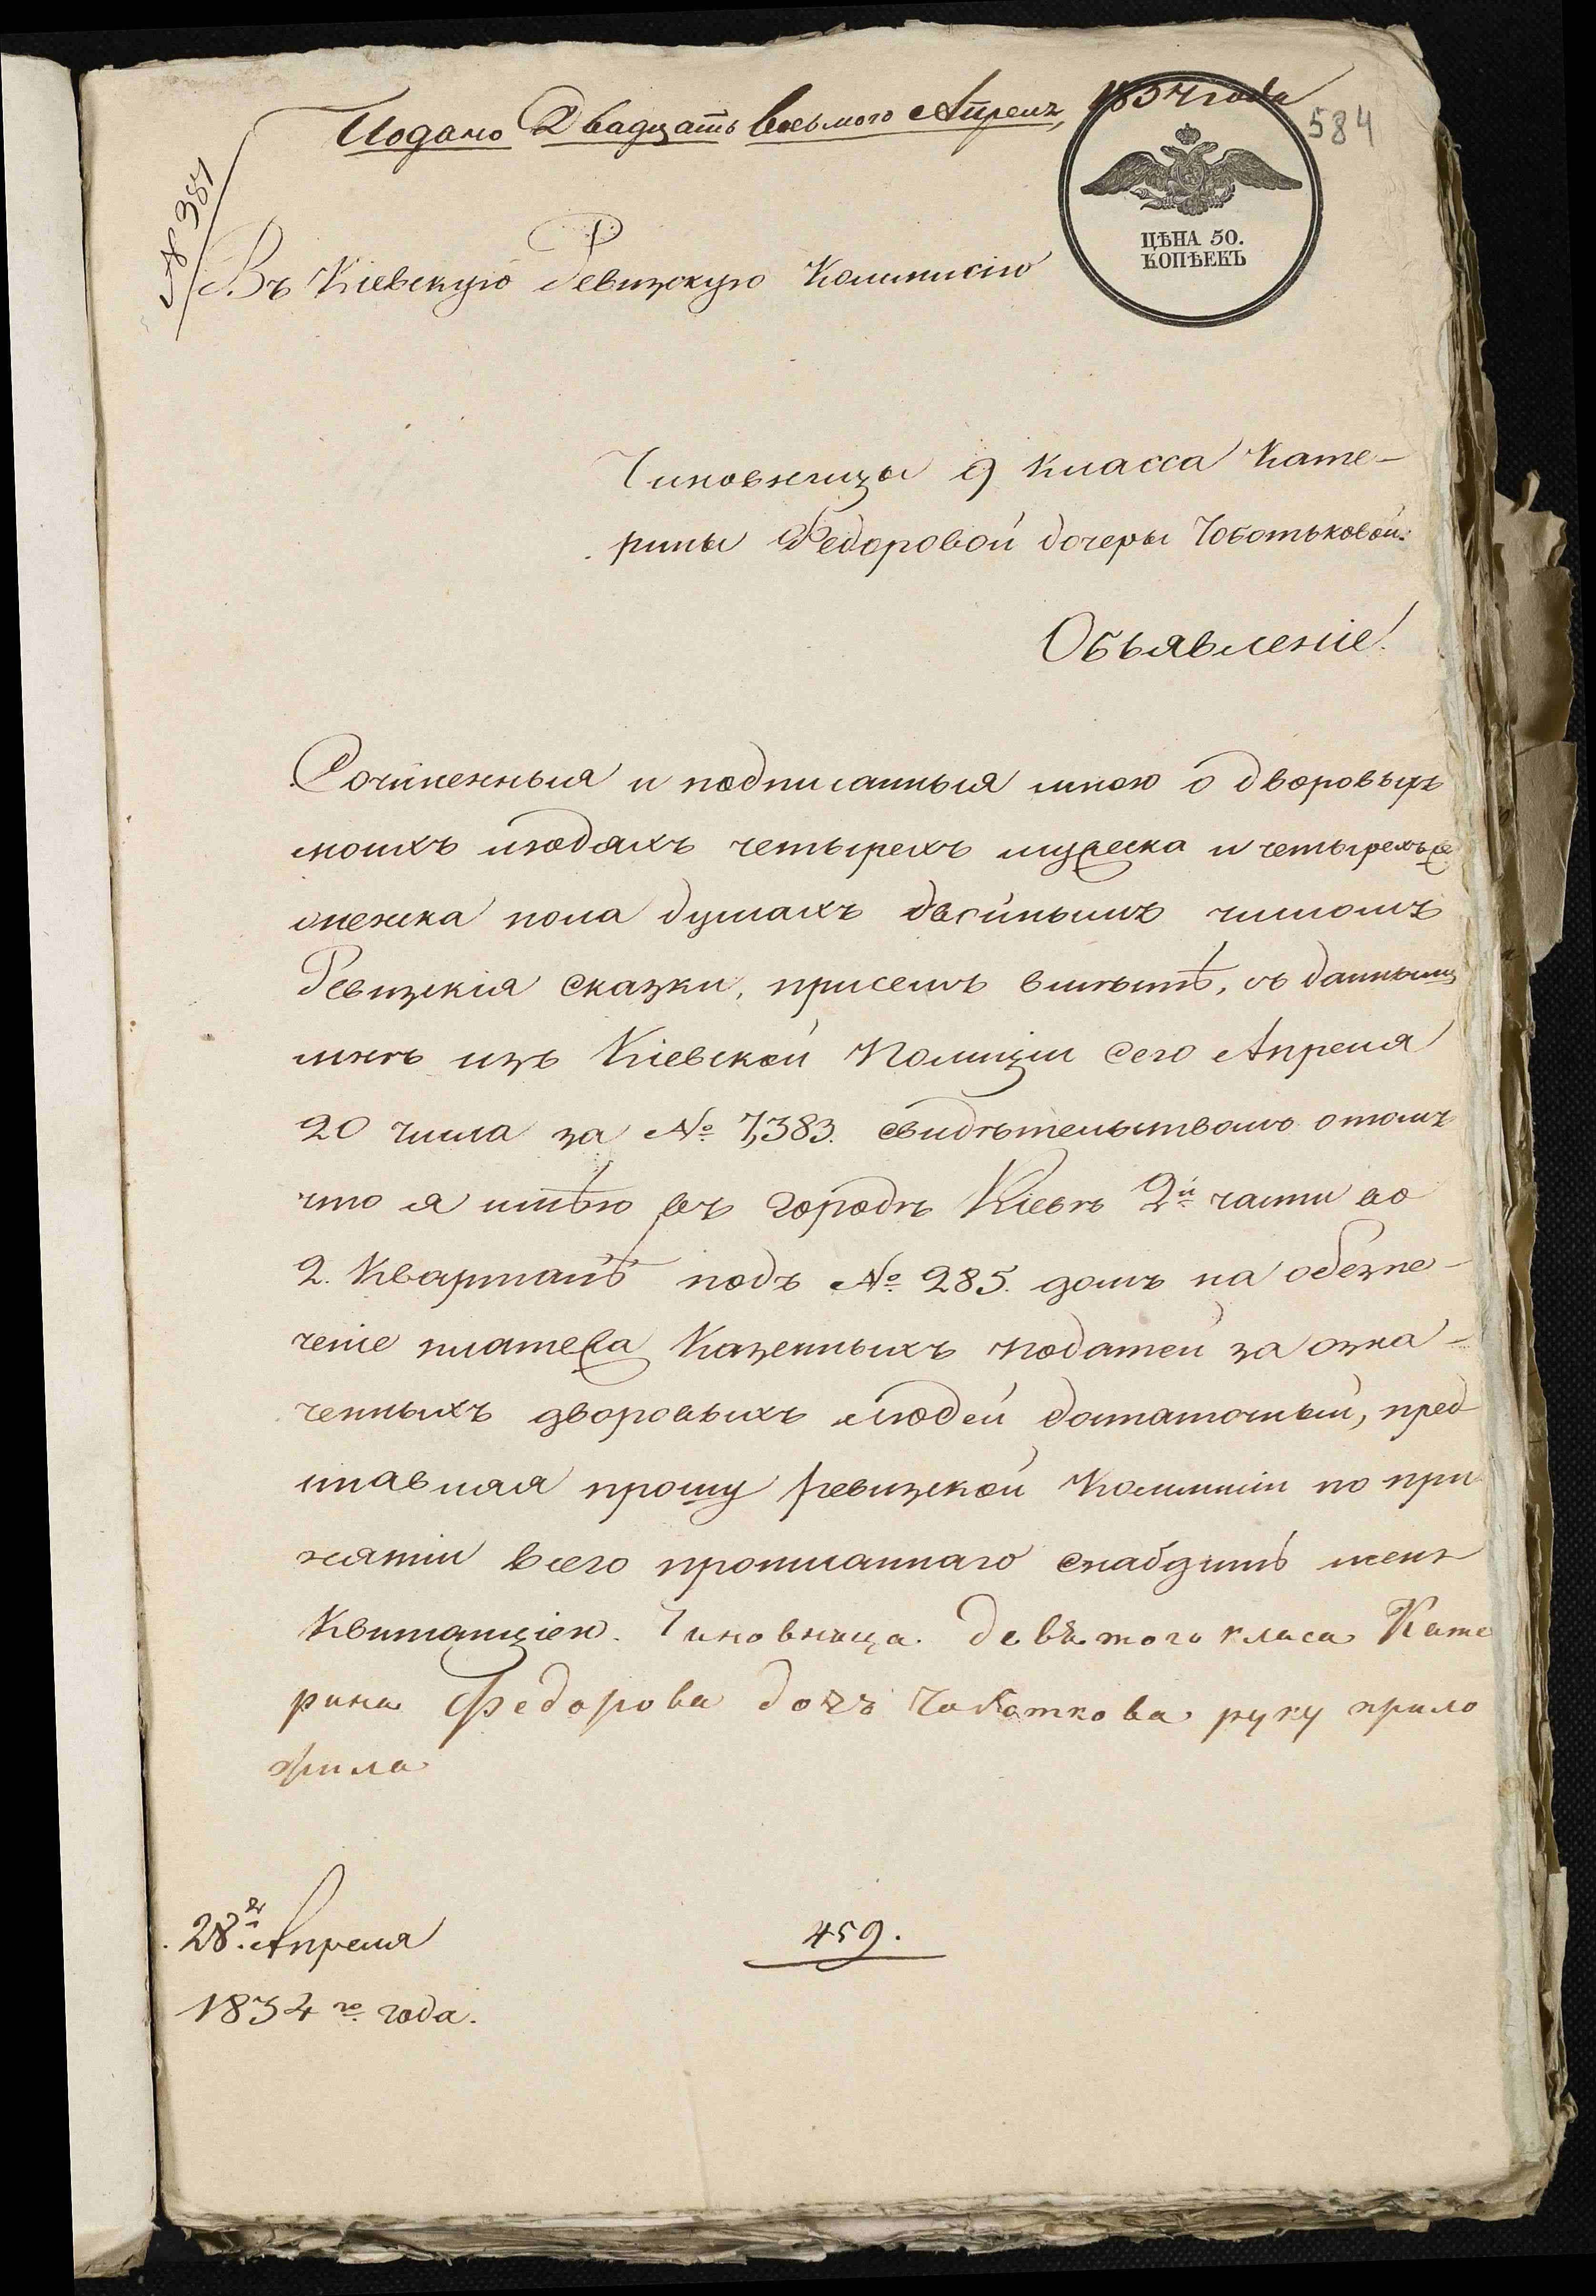 Подано Двадцать Восьмого Апреля, 1834 года
584
№ 381
ЦѢНА 50.
КОПѢЕКЪ
Въ Кіевскую Ревизскую Коммисію
Чиновницы 9 класса Кате-
рины Федоровой дочеры Чоботьковой.
Объявленіе!
Сочиненныя и подписанныя мною о дворовыхъ
моихъ людяхъ четырехъ мужеска и четырехъ же
женска пола душахъ двойнымъ числомъ
Ревизскія сказки, присемъ вместѣ, съ даннымъ
мнѣ изъ Кіевской Полиціи сего Апреля
20 числа за № 7,383. свидѣтельствомъ отомъ
что я имѣю въ городѣ Кіевѣ 2й части во
2. Кварталѣ подъ № 285. домъ на обезпе-
ченіе платежа Казенныхъ податей за озна-
ченныхъ дворовыхъ людей достаточный, пред
ставляя прошу ревизской Коммисіи по при
нятіи всего прописаннаго снабдить меня
Квитанціею. Чиновница девятого класа Кате
рина Федорова дочъ Чоботкова руку прило
жила
28го Апреля
1834го года.
459.